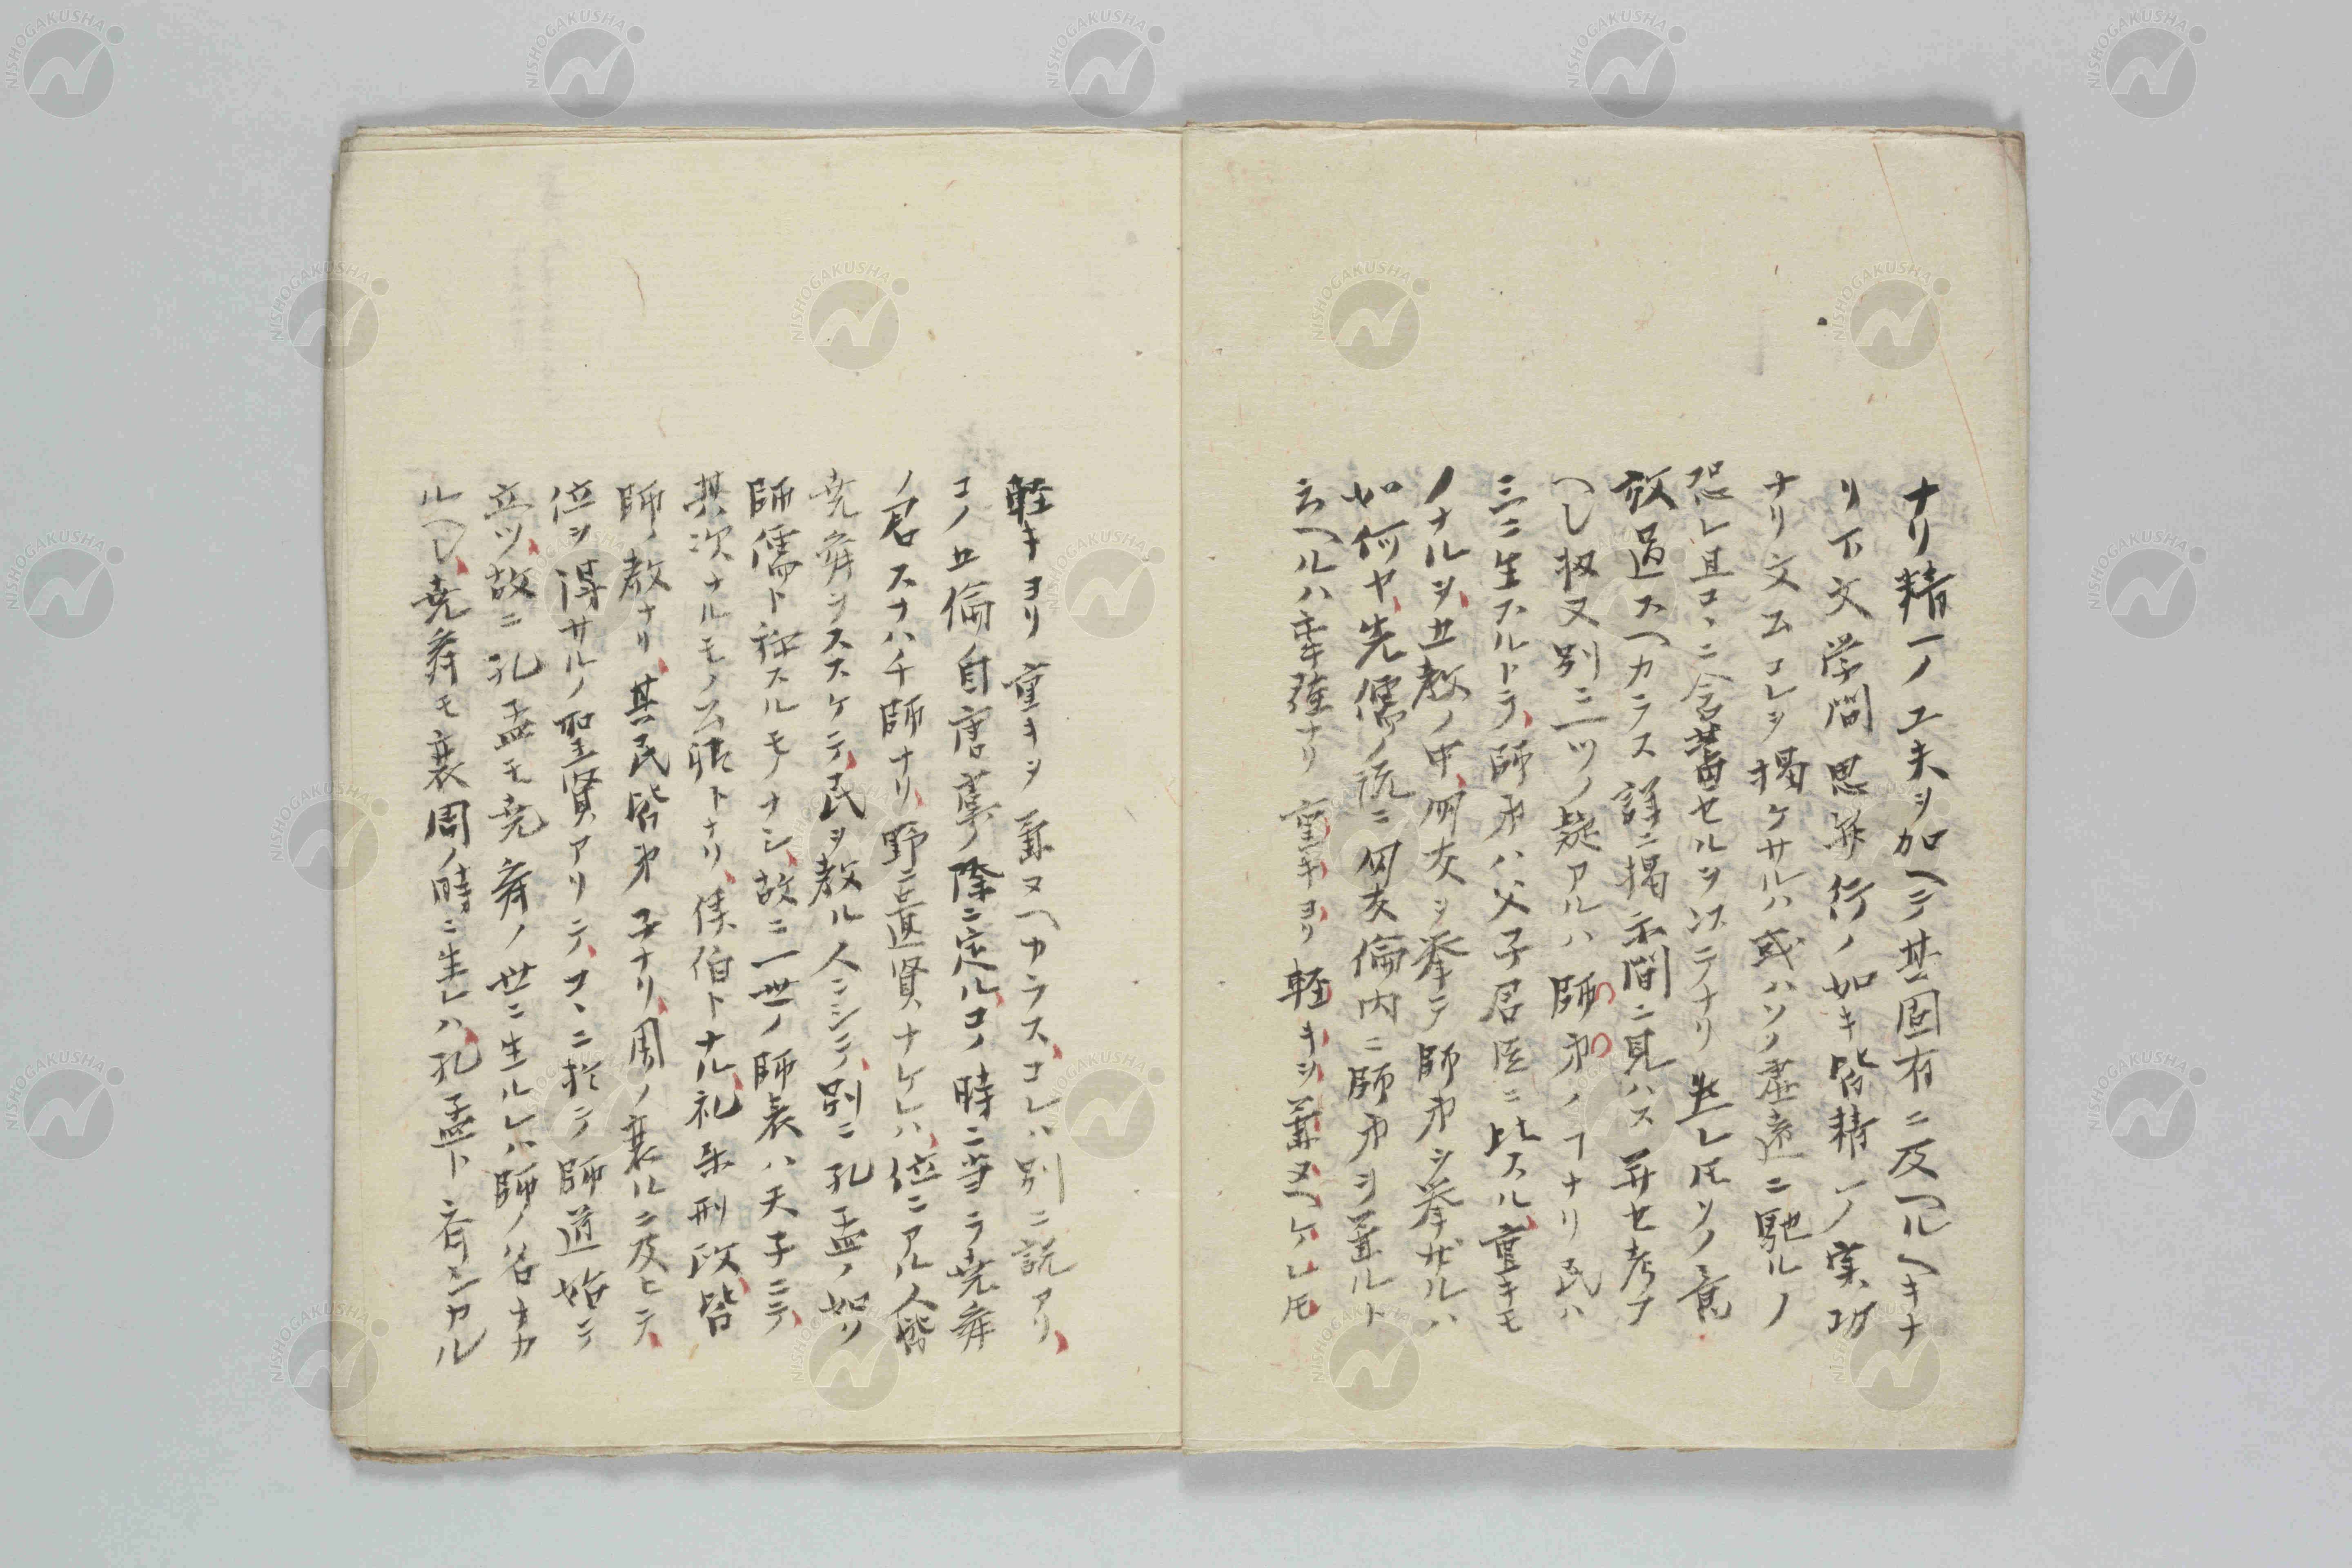 ナリ精一ノ工夫ヲ加ヘテ其固有ニ反ヘルヘキナ
リ下文学問思弁行ノ如キ皆精一ノ実功
ナリ文公コレヲ掲ケサルハ或ハソノ虚遠ニ馳ルノ
恐レ且コヽニ含蓄セルヲ以テナリ然レ𪜈ソノ意
放過スヘカラス詳ニ掲示間ニ見ハス并セ考フ
ヘし扨又別ニ一ツノ疑アルハ師弟ノヿナリ民ハ
三ニ生スルトテ師弟ハ父子君臣ニ比スル重キモ
ノナルヲ五教ノ中朋友ヲ挙テ師弟ヲ挙ザルハ
如何ヤ先儒ノ説ニ朋友倫内ニ師弟ヲ兼ルト
云ヘルハ牽強ナリ重キヨリ軽キヲ兼ヌヘケレ𪜈
軽キヨリ重キヲ兼ヌヘカラスコレハ別ニ説アリ
コノ五倫ノ目唐虞ノ際ニ定ルコノ時ニ当テ堯舜
ノ君スナハチ師ナリ野ニ遺賢ナケレハ位ニアルノ人皆
堯舜ヲススケテ民ヲ教ル人ニシテ別ニ孔孟ノ如ク
師儒ト称スルモノナシ故ニ一世ノ師表ハ天子ニテ
其次ナルモノ公卿トナリ侯伯トナル礼楽刑政皆
師ノ教ナリ其民皆弟子ナリ周ノ衰ルニ及ヒテ
位ヲ得サルノ聖賢アリテコヽニ於テ師道始テ
立ツ故ニ孔孟モ堯舜ノ世ニ生ルレハ師ノ名ナカ
ルヘし堯舜モ衰周ノ時ニ生レハ孔孟ト斉シカル
NISHOGAKUSHA